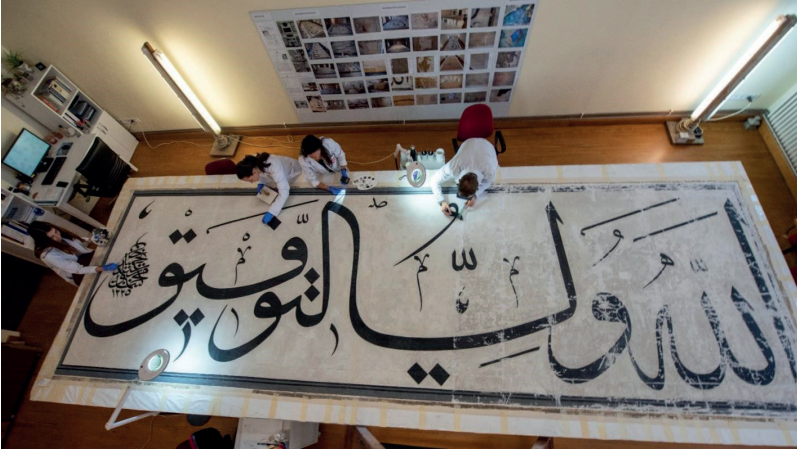 الله ولي التوفيق